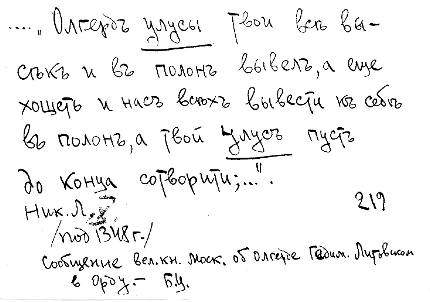 ....„ Олгердъ улусы твои всѣ вы-
сѣкъ и въ полонъ вывелъ, а еще
хощетъ и насъ всѣхъ вывести къ себѣ
въ полонъ, а твой улусъ пустъ
до конца сотворити;...".
Ник. Л.
219
/под 1348 г./
Сообщение вел. кн. Моск. об Олгерде Гедим. Литовском
в Орду. - БЦ.